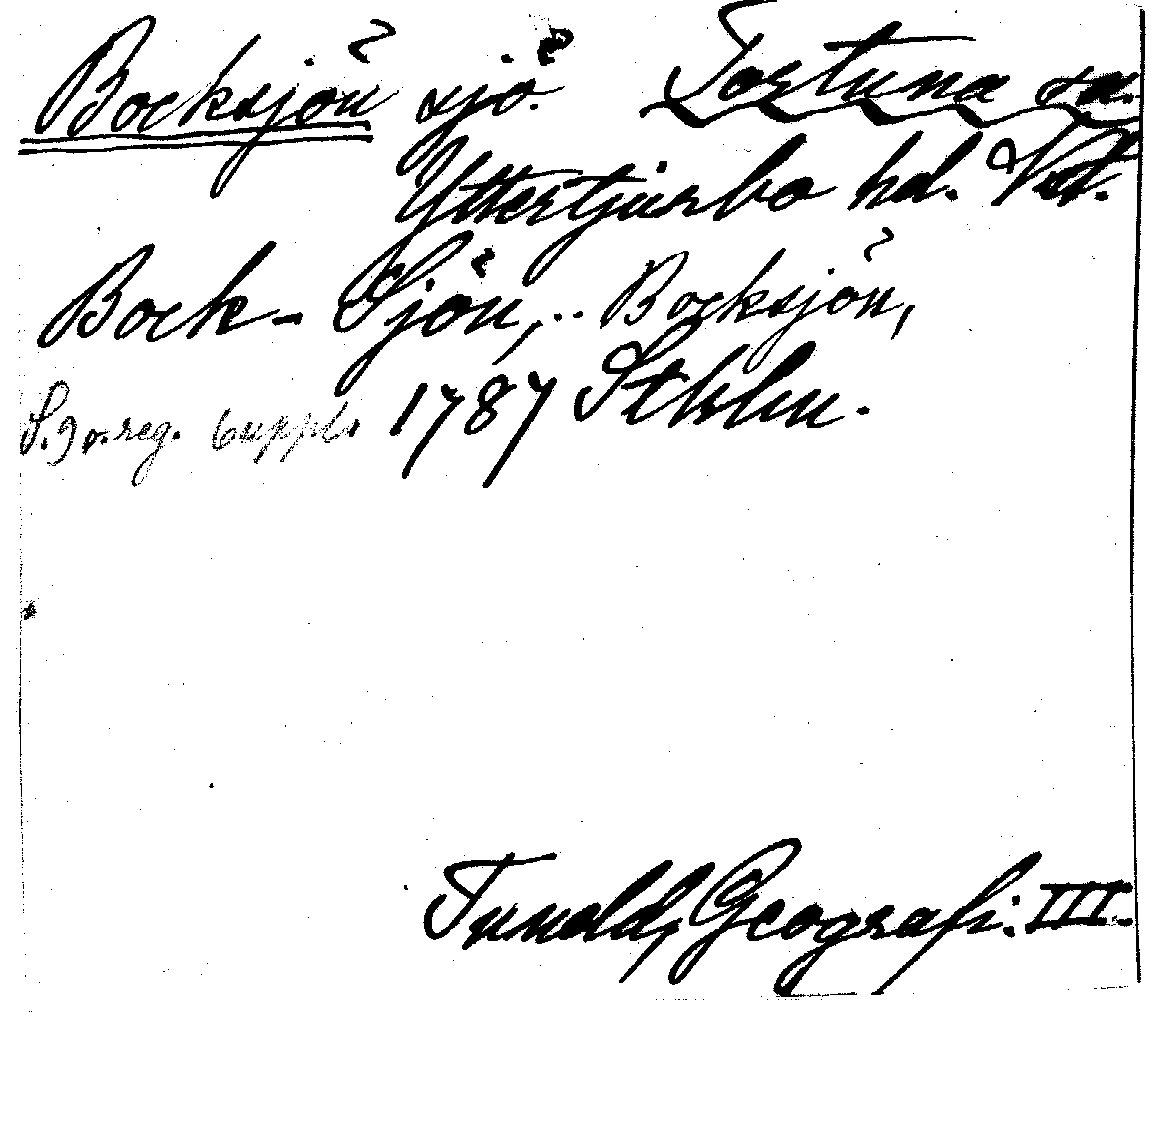 Bocksjön sjö. Tortuna sn.
Yttertjurbo hd. Vstm.
Bock-Sjön, .. Bocksjön,
S. 9 o. reg. 1787 Sthlm.
Tuneld, Geografi. III.